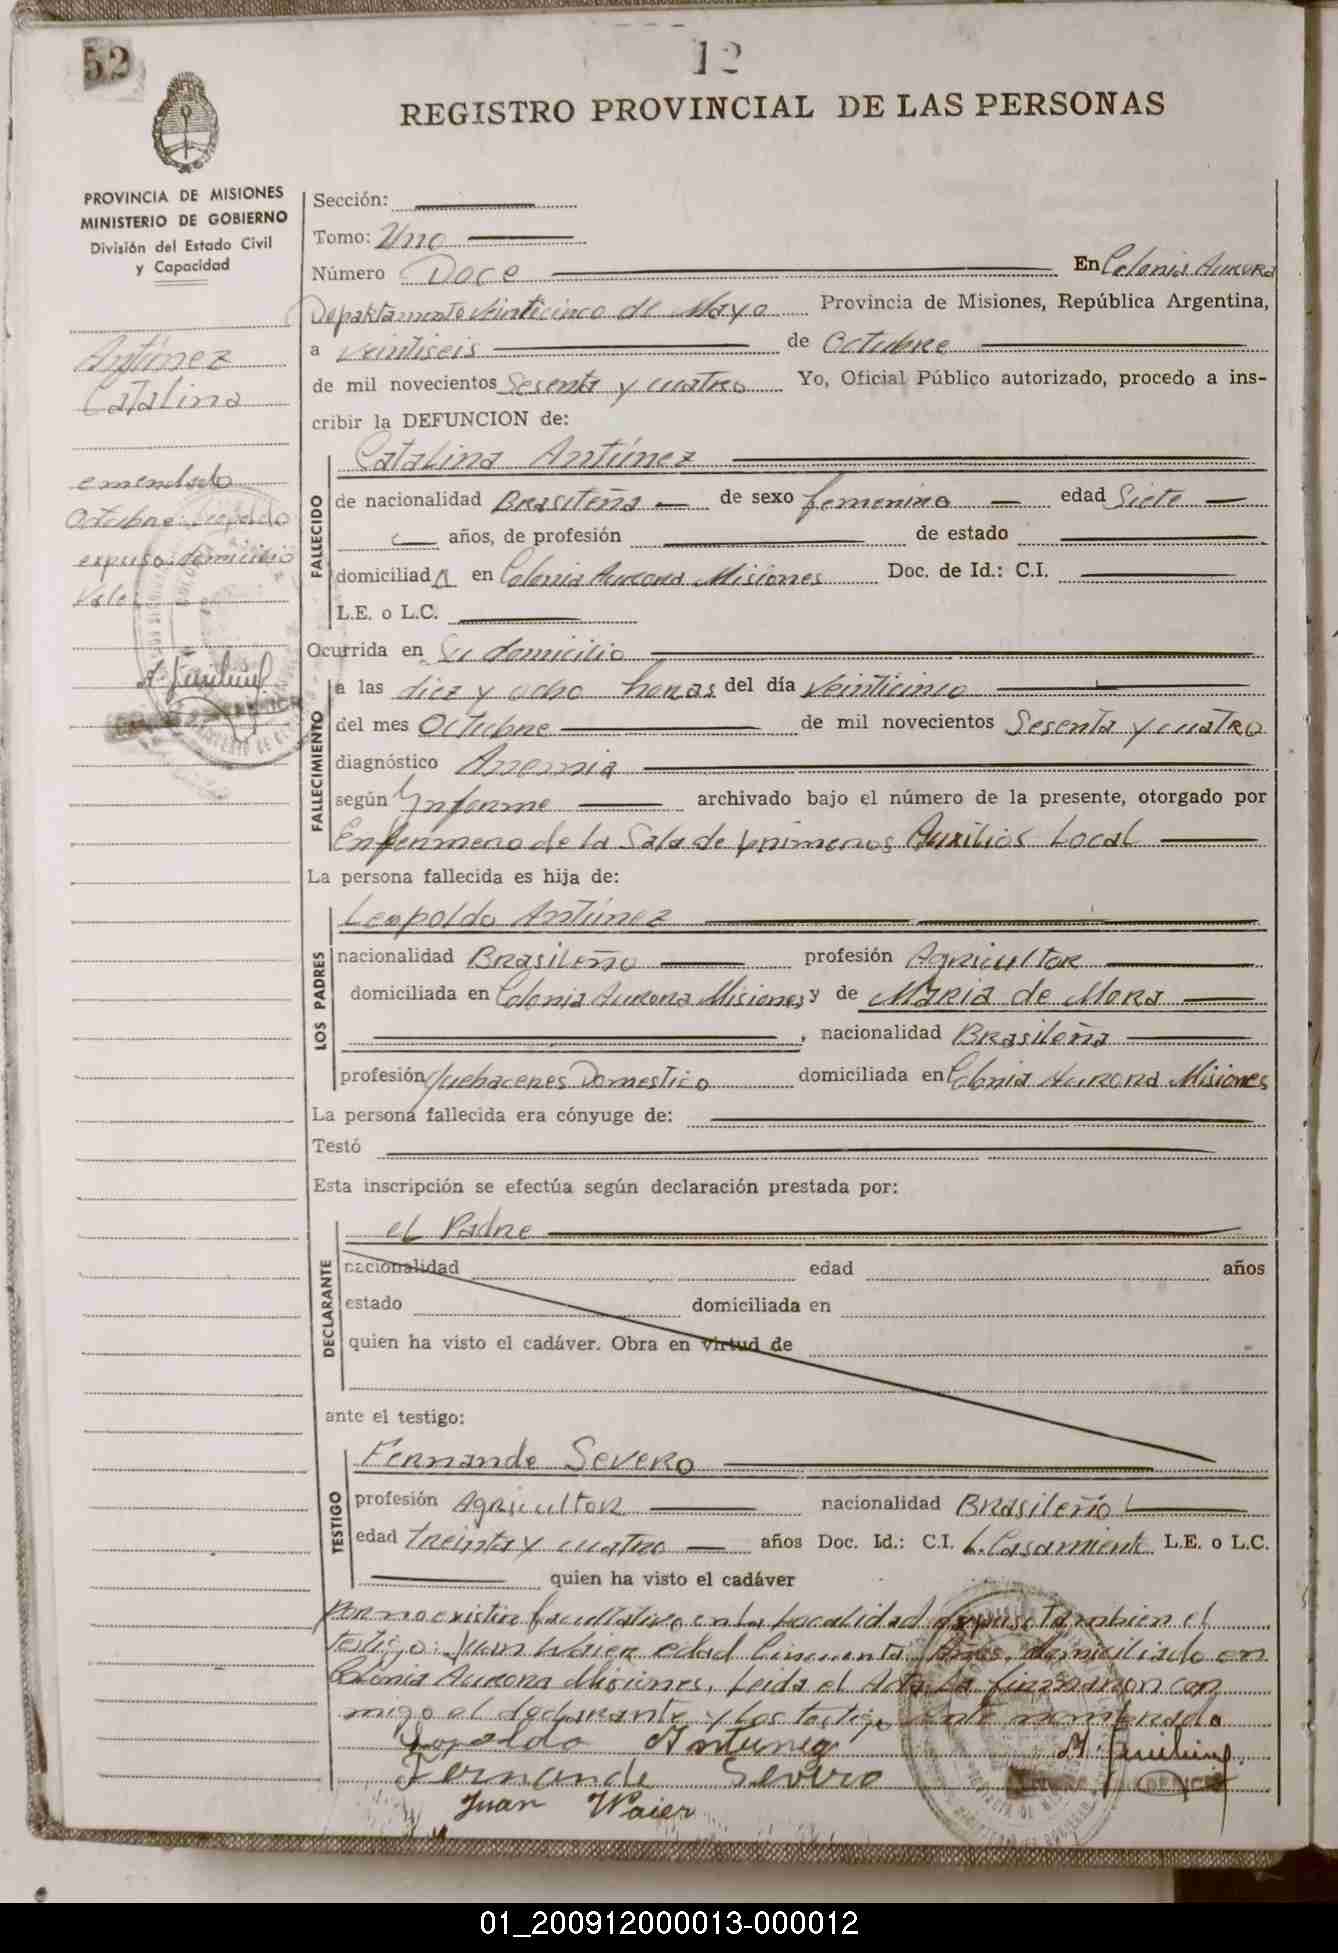 52
12
REGISTRO PROVINCIAL DE LAS PERSONAS
PROVINCIA DE MISIONES
MINISTERIO DE GOBIERNO
División del Estado Civil
y Capacidad
Antúnez
Catalina
emendado
Octubre: Leopoldo
expuso: domicilio
Vale:
Sección:
Tomo: Uno
Número Doce En Colonia Aurora
Departamento Veinticinco de Mayo Provincia de Misiones, República Argentina,
a veintiseis de Octubre
de mil novecientos Sesenta y cuatro Yo, Oficial Público autorizado, procedo a ins-
cribir la DEFUNCION de:
Catalina Antúnez
FALLECIDO
de nacionalidad Brasileña de sexo femenino edad Siete
años, de profesión de estado
domiciliada en Colonia Aurora Misiones Doc. de Id.: C.I.
L.E. o L.C.
Ocurrida en Su domicilio
FALLECIMIENTO
a las diez y ocho horas del día Veinticinco
del mes Octubre de mil novecientos Sesenta y cuatro
diagnóstico Anemia
según Informe archivado bajo el número de la presente, otorgado por
Enfermero de la Sala de primeros Auxilios Local
La persona fallecida es hija de:
LOS PADRES
Leopoldo Antúnez
nacionalidad Brasileño profesión Agricultor
domiciliada en Colonia Aurora Misiones y de Maria de Mora
, nacionalidad Brasileña
profesión Quehaceres Domestico domiciliada en Colonia Aurora Misiones
La persona fallecida era cónyuge de:
Testó
Esta inscripción se efectúa según declaración prestada por:
DECLARANTE
el Padre
nacionalidad edad años
estado domiciliada en
quien ha visto el cadáver. Obra en virtud de
ante el testigo:
TESTIGO
Fernande Severo
profesión Agricultor nacionalidad Brasileño
edad treinta y cuatro años Doc. Id.: C.I. L. Casamiento L.E. o L.C.
quien ha visto el cadáver
por no existir facultativo en la localidad expuso tambien el
testigo: Juan Waier edad Cincuenta Años, domiciliado en
Colonia Aurora Misiones, Leida el Acta la firmaron con
migo el declarante y los testigo ante nombrado
Leopoldo Antunez
Fernande Severo
Juan Waier
01_200912000013-000012